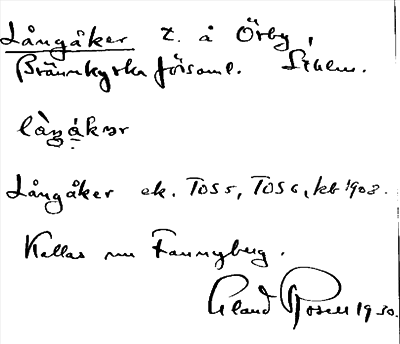 Långåker t. å Örby,
Brännkyrka församl. Sthlm.
låŋåkər
Långåker ek. TOS 5, TOS 6, kb 1908.
Kallas nu Fannyberg.
Erland Rosell 1930.